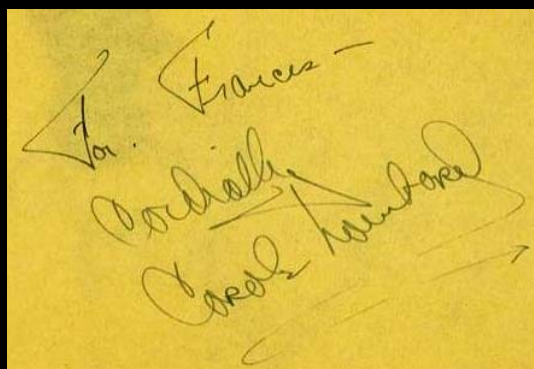 For. Frances —
Cordially
Carole Lombard